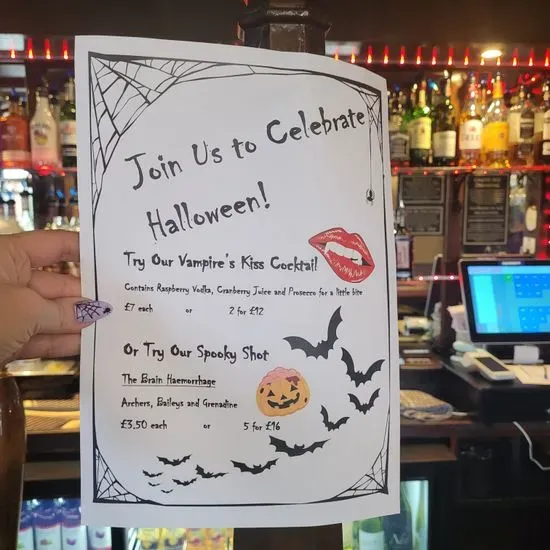 Join Us to Celebrate
Halloween!
Try Our Vampire's Kiss Cocktail
Contains Raspberry Vodka, Cranberry Juice and Prosecco for a little bite
£7 each or 2 for £12
Or Try Our Spooky Shot
The Brain Haemorrhage
Archers, Baileys and Grenadine
£3.50 each or 5 for £16